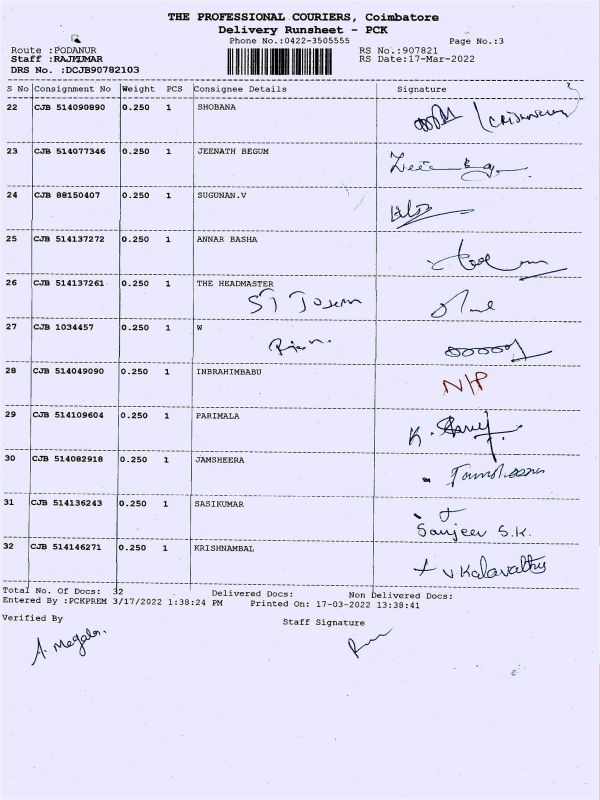 THE PROFESSIONAL COURIERS, Coimbatore
Delivery Runsheet - PCK
Phone No.:0422-3505555
Page No.:3
Route :PODANUR
RS No.:907821
Staff :RAJKUMAR
RS Date:17-Mar-2022
DRS No. :DCJB90782103
S No Consignment No Weight PCS Consignee Details Signature
22 CJB 514090890 0.250 1 SHOBANA
23 CJB 514077346 0.250 1 JEENATH BEGUM
24 CJB 88150407 0.250 1 SUGUNAN.V
25 CJB 514137272 0.250 1 ANNAR BASHA
26 CJB 514137261 0.250 1 THE HEADMASTER
ST Joseph
27 CJB 1034457 0.250 1 W
28 CJB 514049090 0.250 1 INBRAHIMBABU N/P
29 CJB 514109604 0.250 1 PARIMALA K.
30 CJB 514082918 0.250 1 JAMSHEERA
31 CJB 514136243 0.250 1 SASIKUMAR
Sanjeev S.K.
32 CJB 514146271 0.250 1 KRISHNAMBAL V Kalavathy
Total No. Of Docs: 32 Delivered Docs: Non Delivered Docs:
Entered By :PCKPREM 3/17/2022 1:38:24 PM Printed On: 17-03-2022 13:38:41
Verified By Staff Signature
A. Megala.